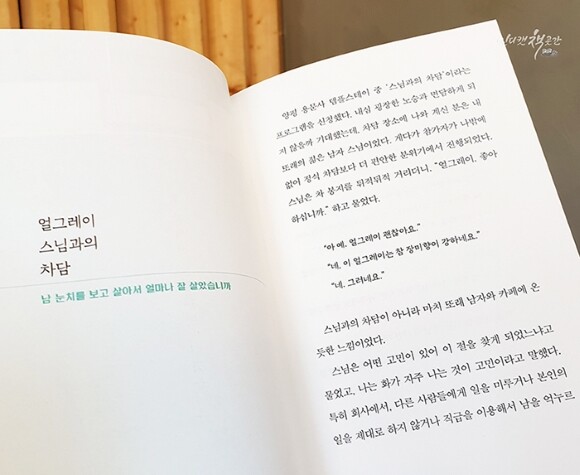 얼그레이
스님과의
차담
남 눈치를 보고 살아서 얼마나 잘 살았습니까
양평 용문사 템플스테이 중 '스님과의 차담'이라는
프로그램을 신청했다. 내심 굉장한 노승과 면담하게 되
지 않을까 기대했는데, 차담 장소에 나와 계신 분은 내
또래의 젊은 남자 스님이었다. 게다가 참가자가 나밖에
없어 정식 차담보다 더 편안한 분위기에서 진행되었다.
스님은 차 봉지를 뒤적뒤적 거리더니, "얼그레이, 좋아
하십니까." 하고 물었다.
"아 예. 얼그레이 괜찮아요."
"네. 이 얼그레이는 참 장미향이 강하네요."
"네. 그러네요."
스님과의 차담이 아니라 마치 또래 남자와 카페에 온
듯한 느낌이었다.
스님은 어떤 고민이 있어 이 절을 찾게 되었느냐고
물었고, 나는 화가 자주 나는 것이 고민이라고 말했다.
특히 회사에서, 다른 사람들에게 일을 미루거나 본인의
일을 제대로 하지 않거나 직급을 이용해서 남을 억누르